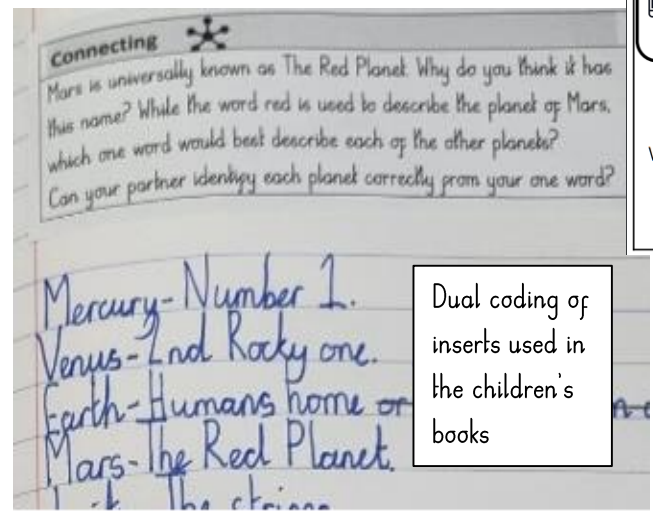 Connecting
Mars is universally known as The Red Planet. Why do you think it has
this name? While the word red is used to describe the planet of Mars,
which one word would best describe each of the other planets?
Can your partner identify each planet correctly from your one word?
Mercury- Number 1.
Venus- 2nd Rocky one.
Earth- Humans home or
Mars- The Red Planet.
The
Dual coding of
inserts used in
the children's
books